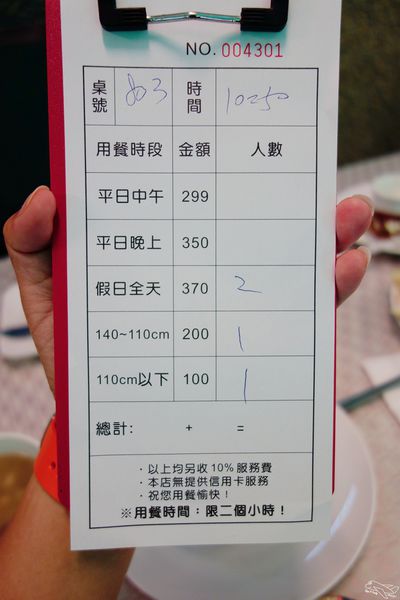 NO. 004301
桌號 803 時間 10:50
用餐時段 金額 人數
平日中午 299
平日晚上 350
假日全天 370 2
140~110cm 200 1
110cm以下 100 1
總計: + =
·以上均另收10%服務費
·本店無提供信用卡服務
·祝您用餐愉快！
※用餐時間：限二個小時！